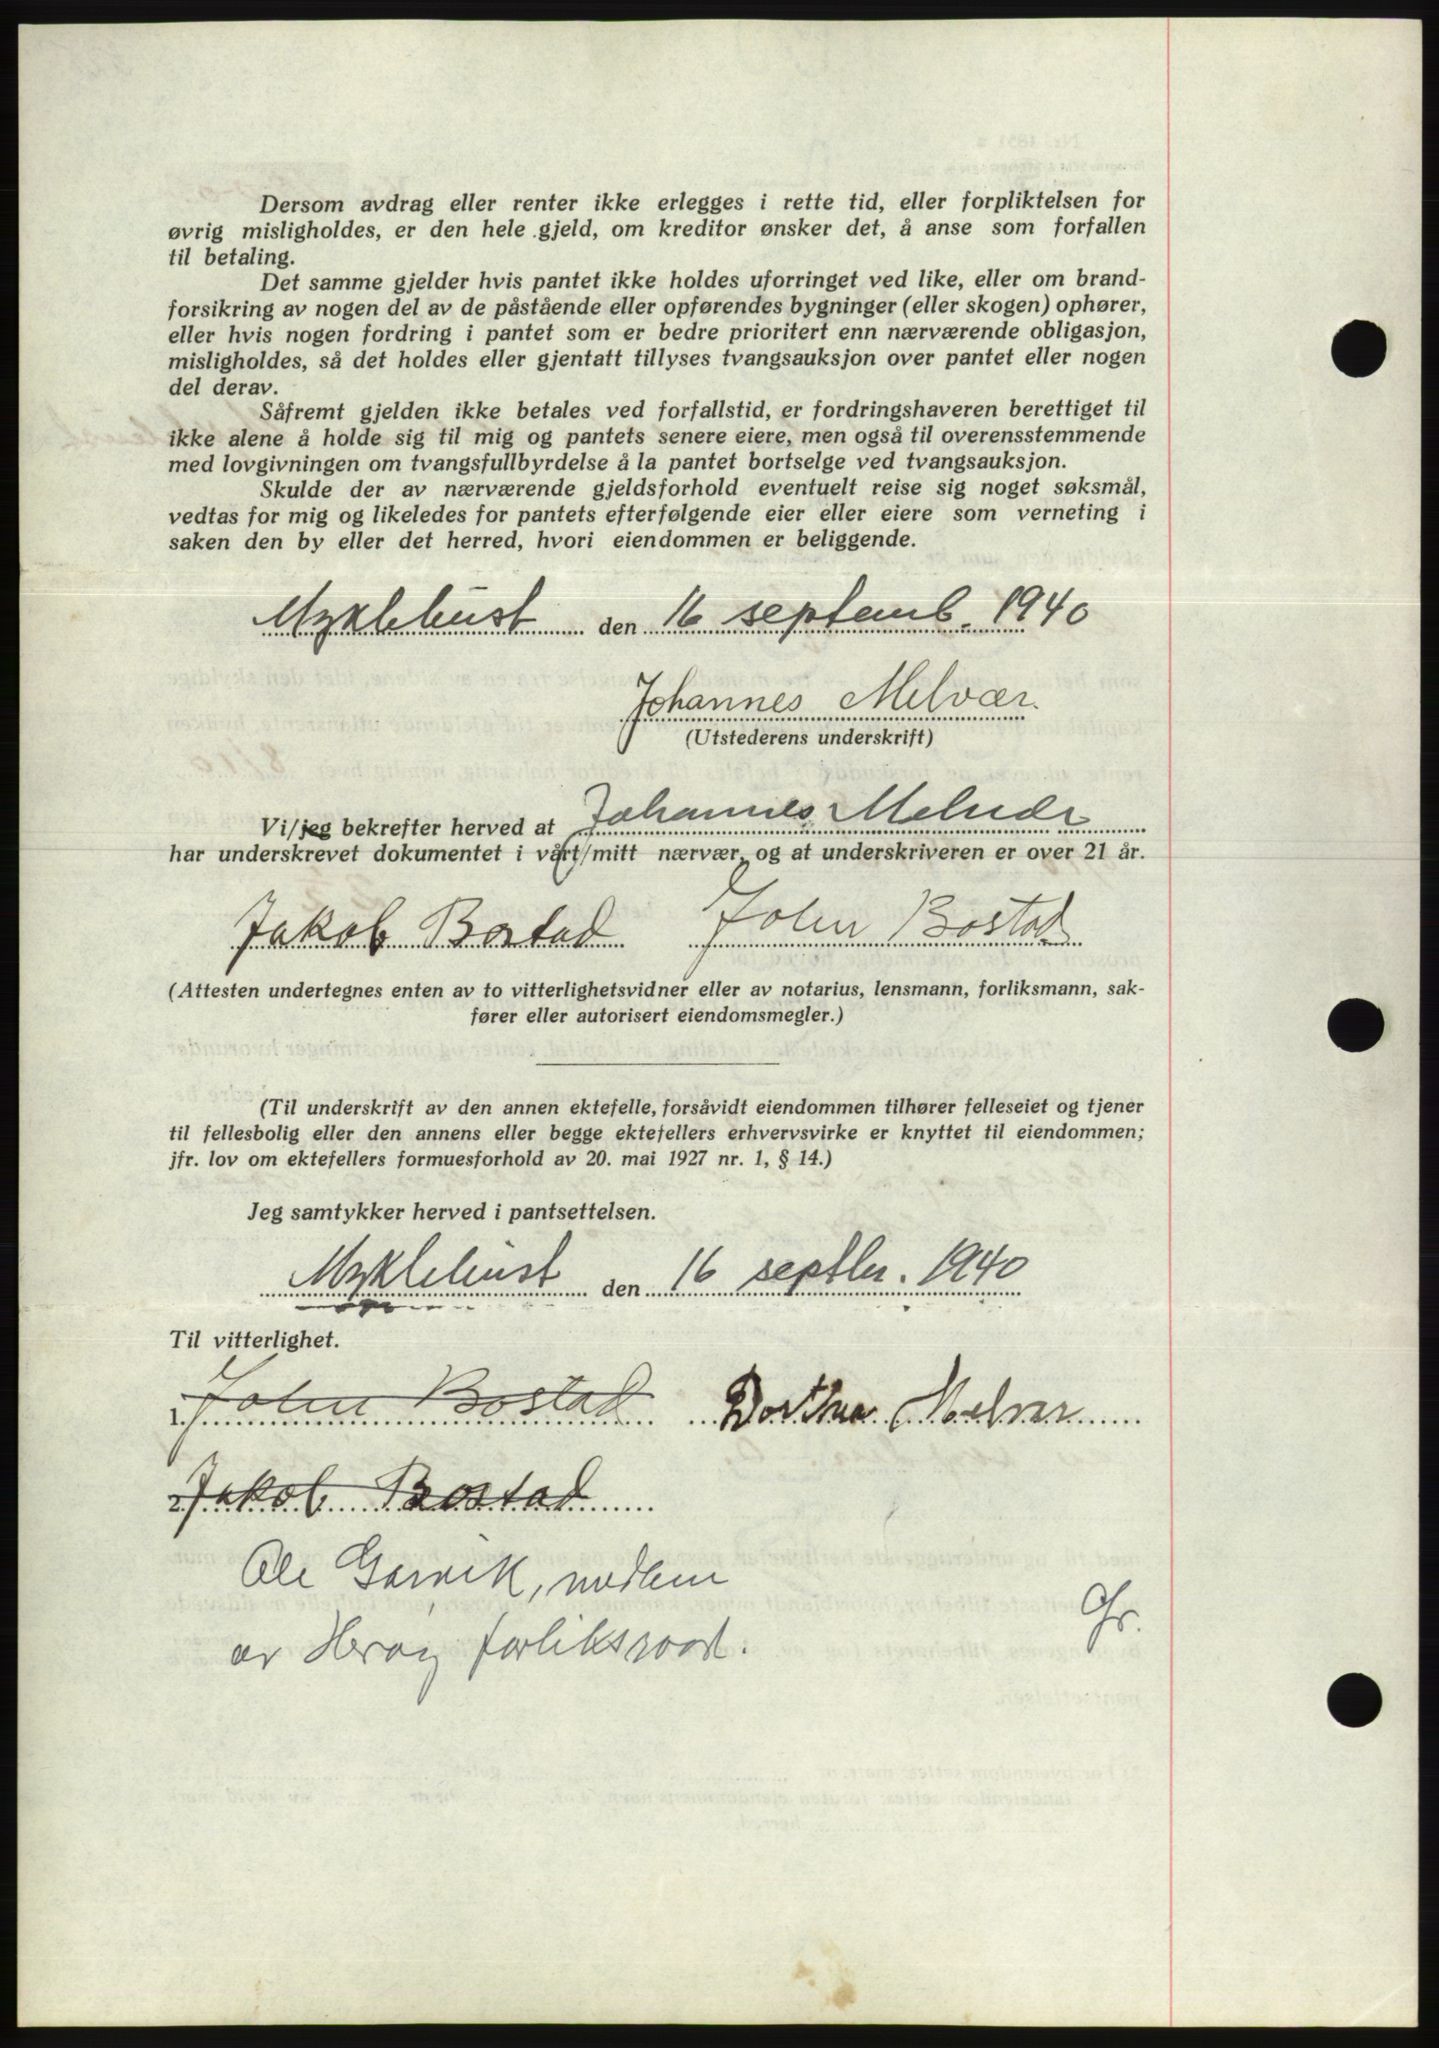 Dersom avdrag eller renter ikke erlegges i rette tid, eller forpliktelsen for
øvrig misligholdes, er den hele gjeld, om kreditor ønsker det, å anse som forfallen
til betaling.
Det samme gjelder hvis pantet ikke holdes uforringet ved like, eller om brand-
forsikring av nogen del av de påstående eller opførendes bygninger (eller skogen) ophører,
eller hvis nogen fordring i pantet som er bedre prioritert enn nærværende obligasjon,
misligholdes, så det holdes eller gjentatt tillyses tvangsauksjon over pantet eller nogen
del derav.
Såfremt gjelden ikke betales ved forfallstid, er fordringshaveren berettiget til
ikke alene å holde sig til mig og pantets senere eiere, men også til overensstemmende
med lovgivningen om tvangsfullbyrdelse å la pantet bortselge ved tvangsauksjon.
Skulde der av nærværende gjeldsforhold eventuelt reise sig noget søksmål,
vedtas for mig og likeledes for pantets efterfølgende eier eller eiere som verneting i
saken den by eller det herred, hvori eiendommen er beliggende.
Myklebust den 16 septemb. 1940
Johannes Melvær.
(Utstederens underskrift)
Vi/jeg bekrefter herved at Johannes Melvær
har underskrevet dokumentet i vårt/mitt nærvær, og at underskriveren er over 21 år.
Jakob Bostad John Bostad
(Attesten undertegnes enten av to vitterlighetsvidner eller av notarius, lensmann, forliksmann, sak-
fører eller autorisert eiendomsmegler.)
(Til underskrift av den annen ektefelle, forsåvidt eiendommen tilhører felleseiet og tjener
til fellesbolig eller den annens eller begge ektefellers erhvervsvirke er knyttet til eiendommen;
jfr. lov om ektefellers formuesforhold av 20. mai 1927 nr. 1, § 14.)
Jeg samtykker herved i pantsettelsen.
Myklebust den 16 septbr. 1940
Til vitterlighet.
1. John Bostad Dorthea Melvær
2. Jakob Bostad
Ole Garvik, medlem
av Herøy forliksraad.
Gr.